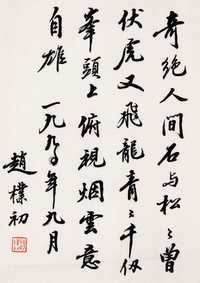 奇絕人間石与松〻曾
伏虎又飛龍青〻千仞
峯頭上俯視烟雲意
自雄 一九九〇年九月
趙樸初